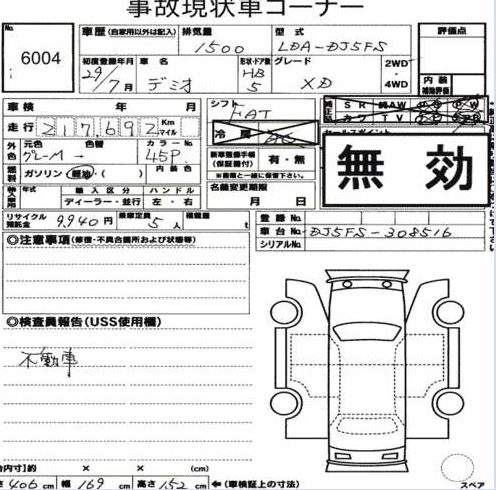 事故現状車コーナー
No.
6004
車歴 (自家用以外は記入) 排気量 1500 型式 LDA-DJ5FS 評価点
初度登録年月 29/7月 車名 デミオ 形状・ドア数 HB 5 グレード XD 2WD・4WD
内装補助評価
車検 年 月 シフト FAT 純正 SR 純AW PS PW
走行 217,692 Km マイル 冷房 AC カワ TV
セールスポイント
外色 元色 グレーM → 色替 カラーNo. 45P 新車整備手帳(保証書付) 有・無
※書類と一緒に保管下さい。
無効
燃料 ガソリン 軽油・( ) 内装色 名義変更期限
輸入車用 年式 輸入区分 ディーラー・並行 ハンドル 左・右 月 日
リサイクル預託金 9,940円 乗車定員 5人 積載量 t
登録No.
車台No. DJ5FS-308516
シリアルNo.
◎注意事項(修復・不具合箇所および状態等)
◎検査員報告(USS使用欄)
不動車
台内寸)約 × × (cm)
さ 406 cm 幅 169 cm 高さ 152 cm ←(車検証上の寸法)
スペア